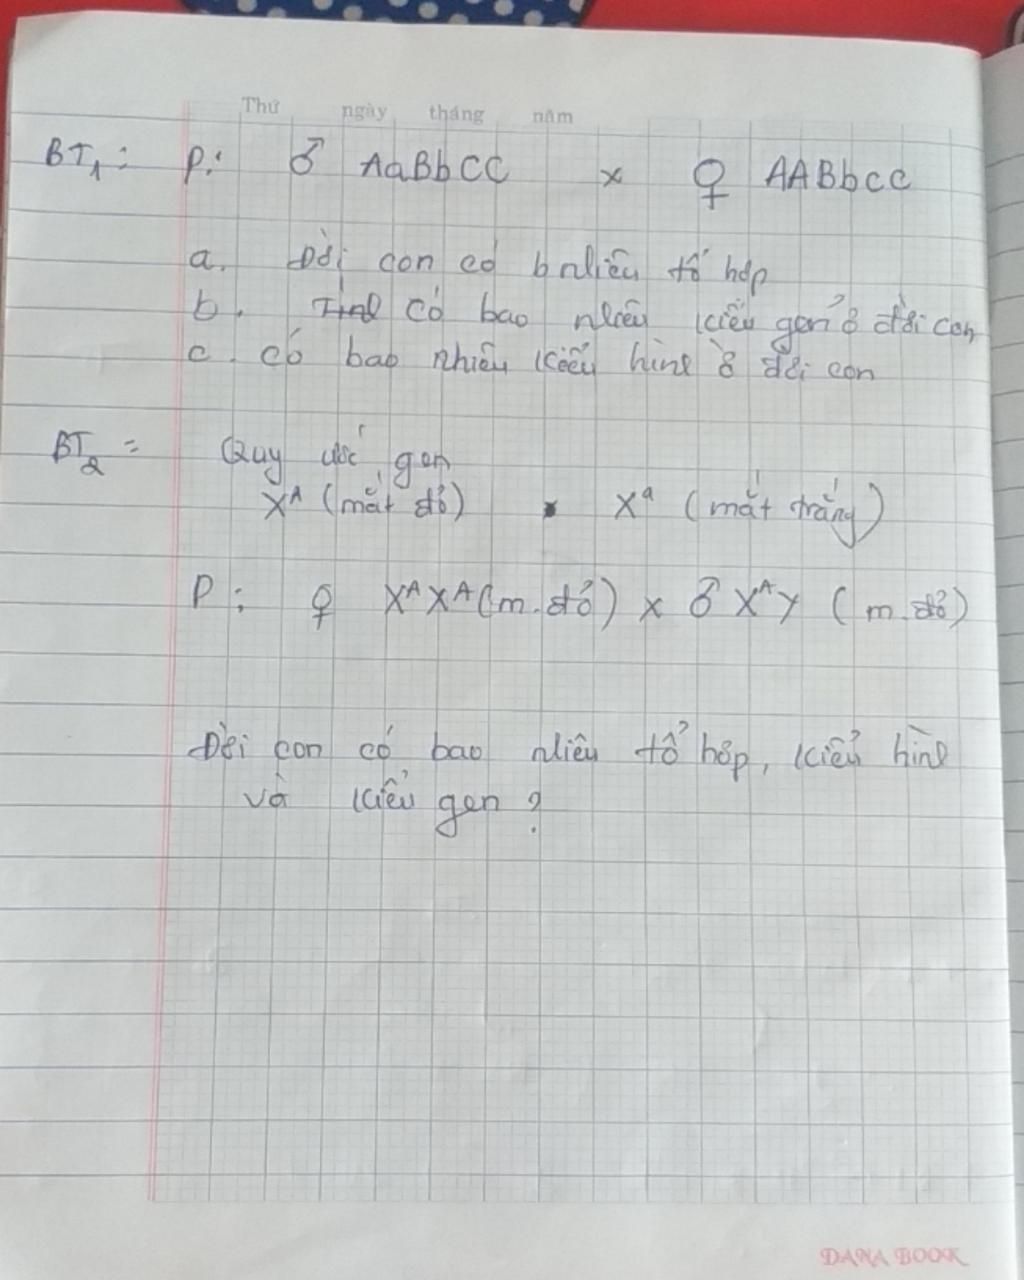 Thứ ngày tháng năm
BT1: P: ♂ AaBbCC x ♀ AABbcc
a. Đời con có b nhiêu tổ hợp
b. Tính có bao nhiêu kiểu gen ở đời con
c. có bao nhiêu kiểu hình ở đời con
BT2 = Quy ước gen
Xᴬ (mắt đỏ) Xᵃ (mắt trắng)
P: ♀ XᴬXᴬ (m.đỏ) x ♂ XᴬY (m.đỏ)
Đời con có bao nhiêu tổ hợp, kiểu hình
và kiểu gen?
DANA BOOK